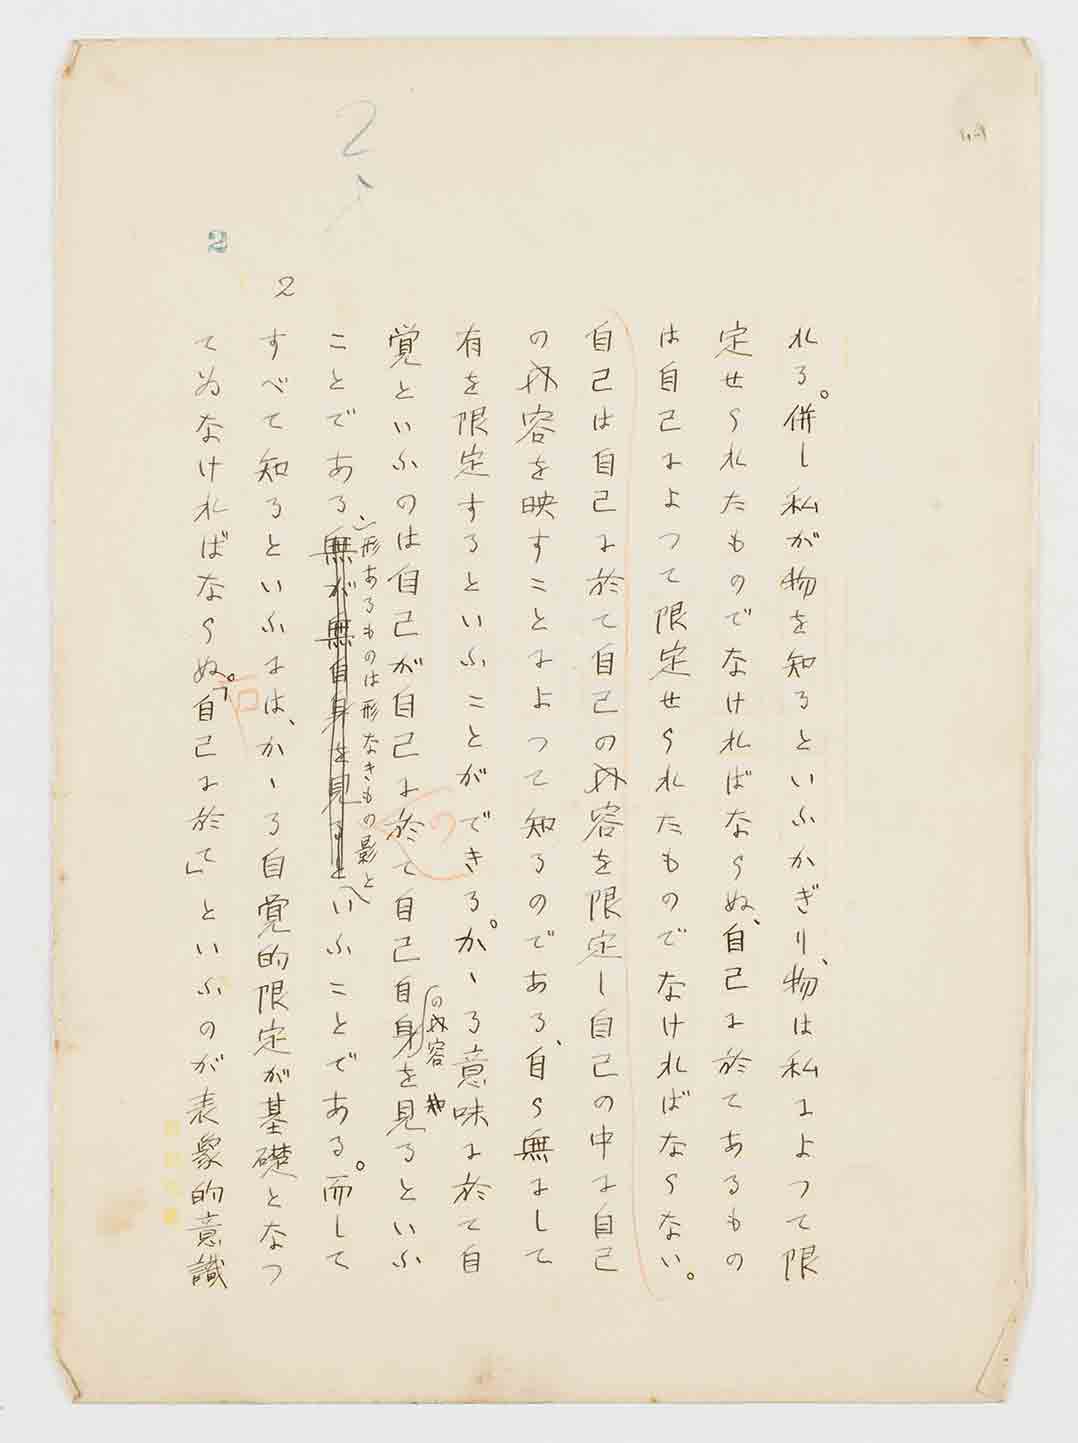 2
2
2
れる。併し私が物を知るといふかぎり、物は私によつて限
定せられたものでなければならぬ、自己に於てあるもの
は自己によつて限定せられたものでなければならない。
自己は自己に於て自己の内容を限定し自己の中に自己
の内容を映すことによつて知るのである、自ら無にして
有を限定するといふことができる。かゝる意味に於て自
の内容
覚といふのは自己が自己に於て自己自身を見るといふ
、形あるものは形なきもの の影と
ことである無が無自身を見るといふことである。而して
すべて知るといふには、かゝる自覚的限定が基礎となつ
てゐなければならぬ。「自己に於て」といふのが表象的意識